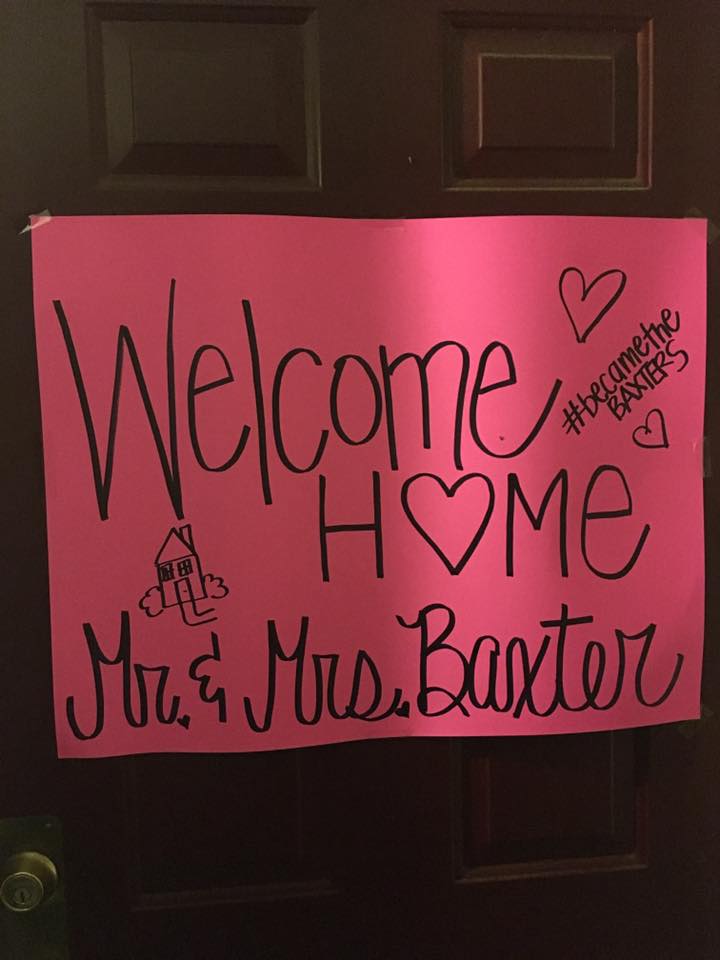 Welcome
#becamethe
BAXTERS
HOMe
Mr. & Mrs. Baxter